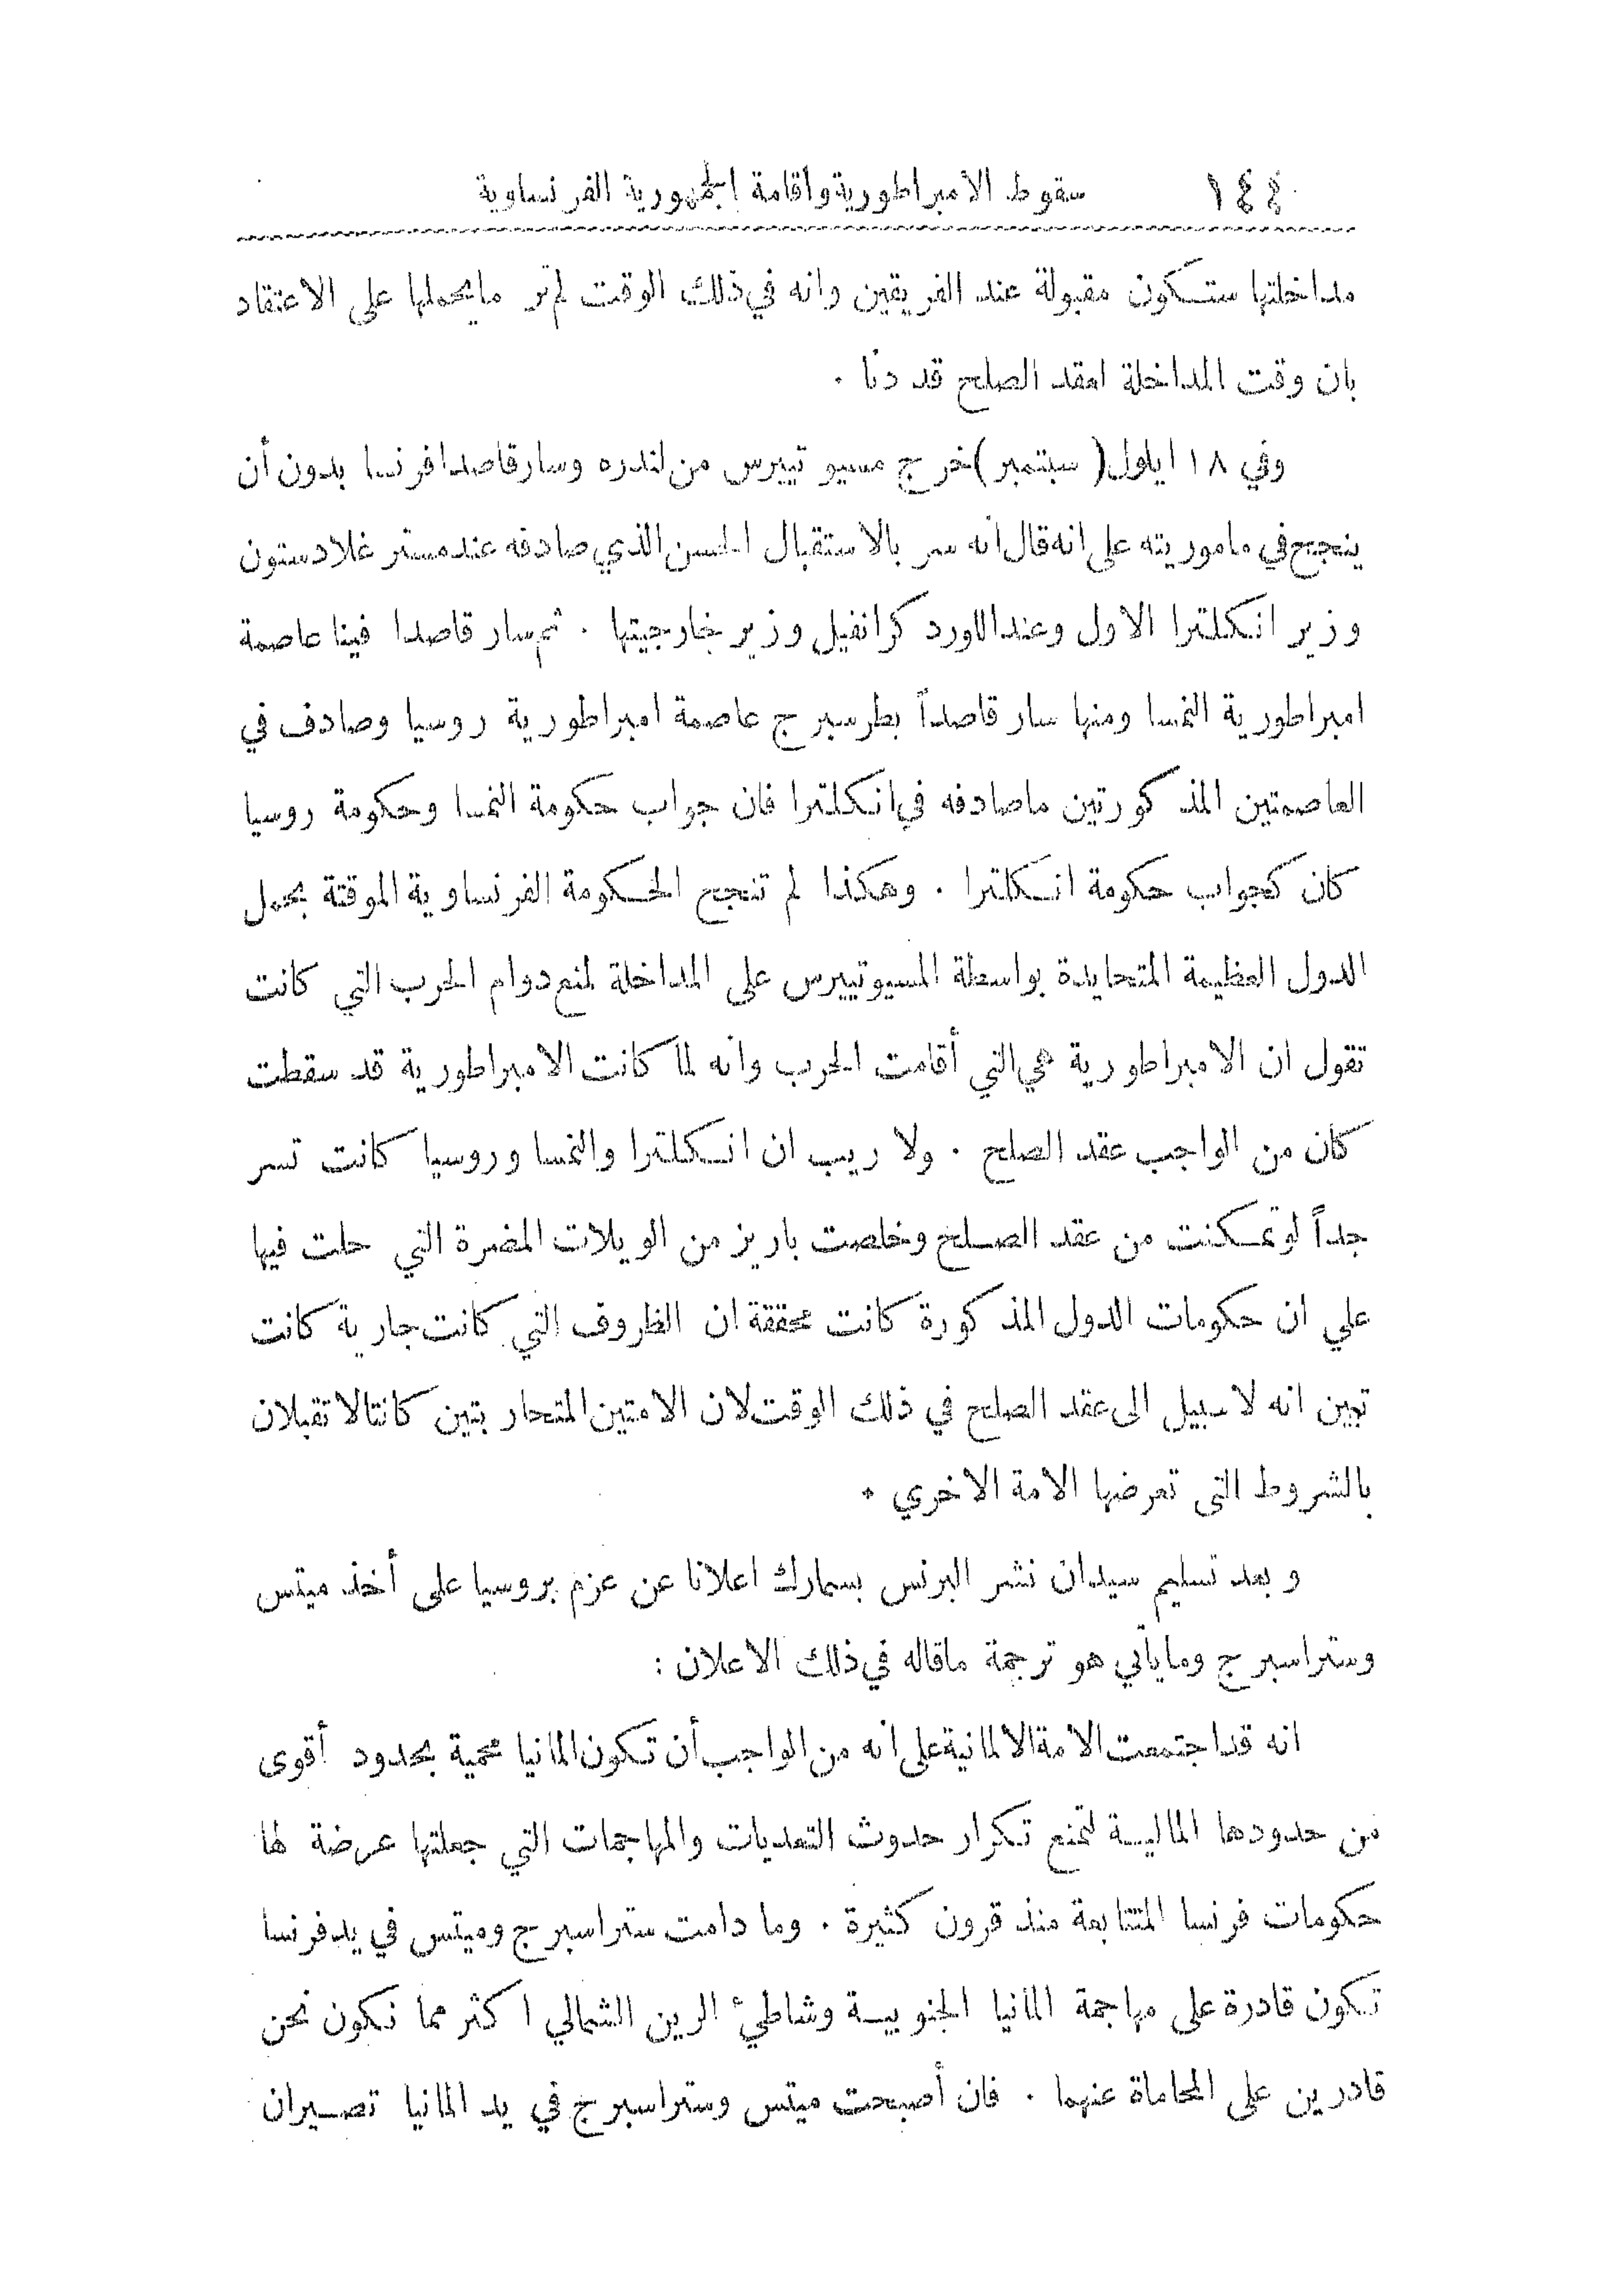 ١٤٤ سقوط الامبراطورية واقامة الجمهورية الفرنساوية
مداخلتها ستكون مقبولة عند الفريقين وانه في ذلك الوقت لم تر ما يحملها على الاعتقاد
بان وقت المداخلة لعقد الصلح قد دنا .
وفي ١٨ ايلول ( سبتمبر ) خرج مسيو تييرس من لندره وسار قاصدا فرنسا بدون أن
ينجح في ماموريته على انه قال انه سر بالاستقبال الحسن الذي صادفه عند مستر غلادستون
وزير انكلترا الاول وعند اللورد كرانفيل وزير خارجيتها . ثم سار قاصدا فينا عاصمة
امبراطورية النمسا ومنها سار قاصداً بطرسبرج عاصمة امبراطورية روسيا وصادف في
العاصمتين المذكورتين ما صادفه في انكلترا فان جواب حكومة النمسا وحكومة روسيا
كان كجواب حكومة انكلترا . وهكذا لم تنجح الحكومة الفرنساوية الموقتة بحمل
الدول العظيمة المتحايدة بواسطة المسيو تييرس على المداخلة لمنع دوام الحرب التي كانت
تقول ان الامبراطورية هي التي أقامت الحرب وانه لما كانت الامبراطورية قد سقطت
كان من الواجب عقد الصلح . ولا ريب ان انكلترا والنمسا وروسيا كانت تسر
جداً لو تمكنت من عقد الصلح وخلصت باريز من الويلات المضرة التي حلت فيها
علي ان حكومات الدول المذكورة كانت محققة ان الظروف التي كانت جارية كانت
تبين انه لا سبيل الى عقد الصلح في ذلك الوقت لان الامتين المتحاربتين كانتا لا تقبلان
بالشروط التي تعرضها الامة الاخري .
وبعد تسليم سيدان نشر البرنس بسمارك اعلانا عن عزم بروسيا على أخذ ميتس
وستراسبرج وما يأتي هو ترجمة ما قاله في ذلك الاعلان :
انه قد اجتمعت الامة الالمانية على انه من الواجب أن تكون المانيا محمية بحدود أقوى
من حدودها الحالية لتمنع تكرار حدوث التعديات والمهاجمات التي جعلتها عرضة لها
حكومات فرنسا المتتابعة منذ قرون كثيرة . وما دامت ستراسبرج وميتس في يد فرنسا
تكون قادرة على مهاجمة المانيا الجنوبية وشاطيء الرين الشمالي اكثر مما نكون نحن
قادرين على المحاماة عنهما . فان أصبحت ميتس وستراسبرج في يد المانيا تصيران